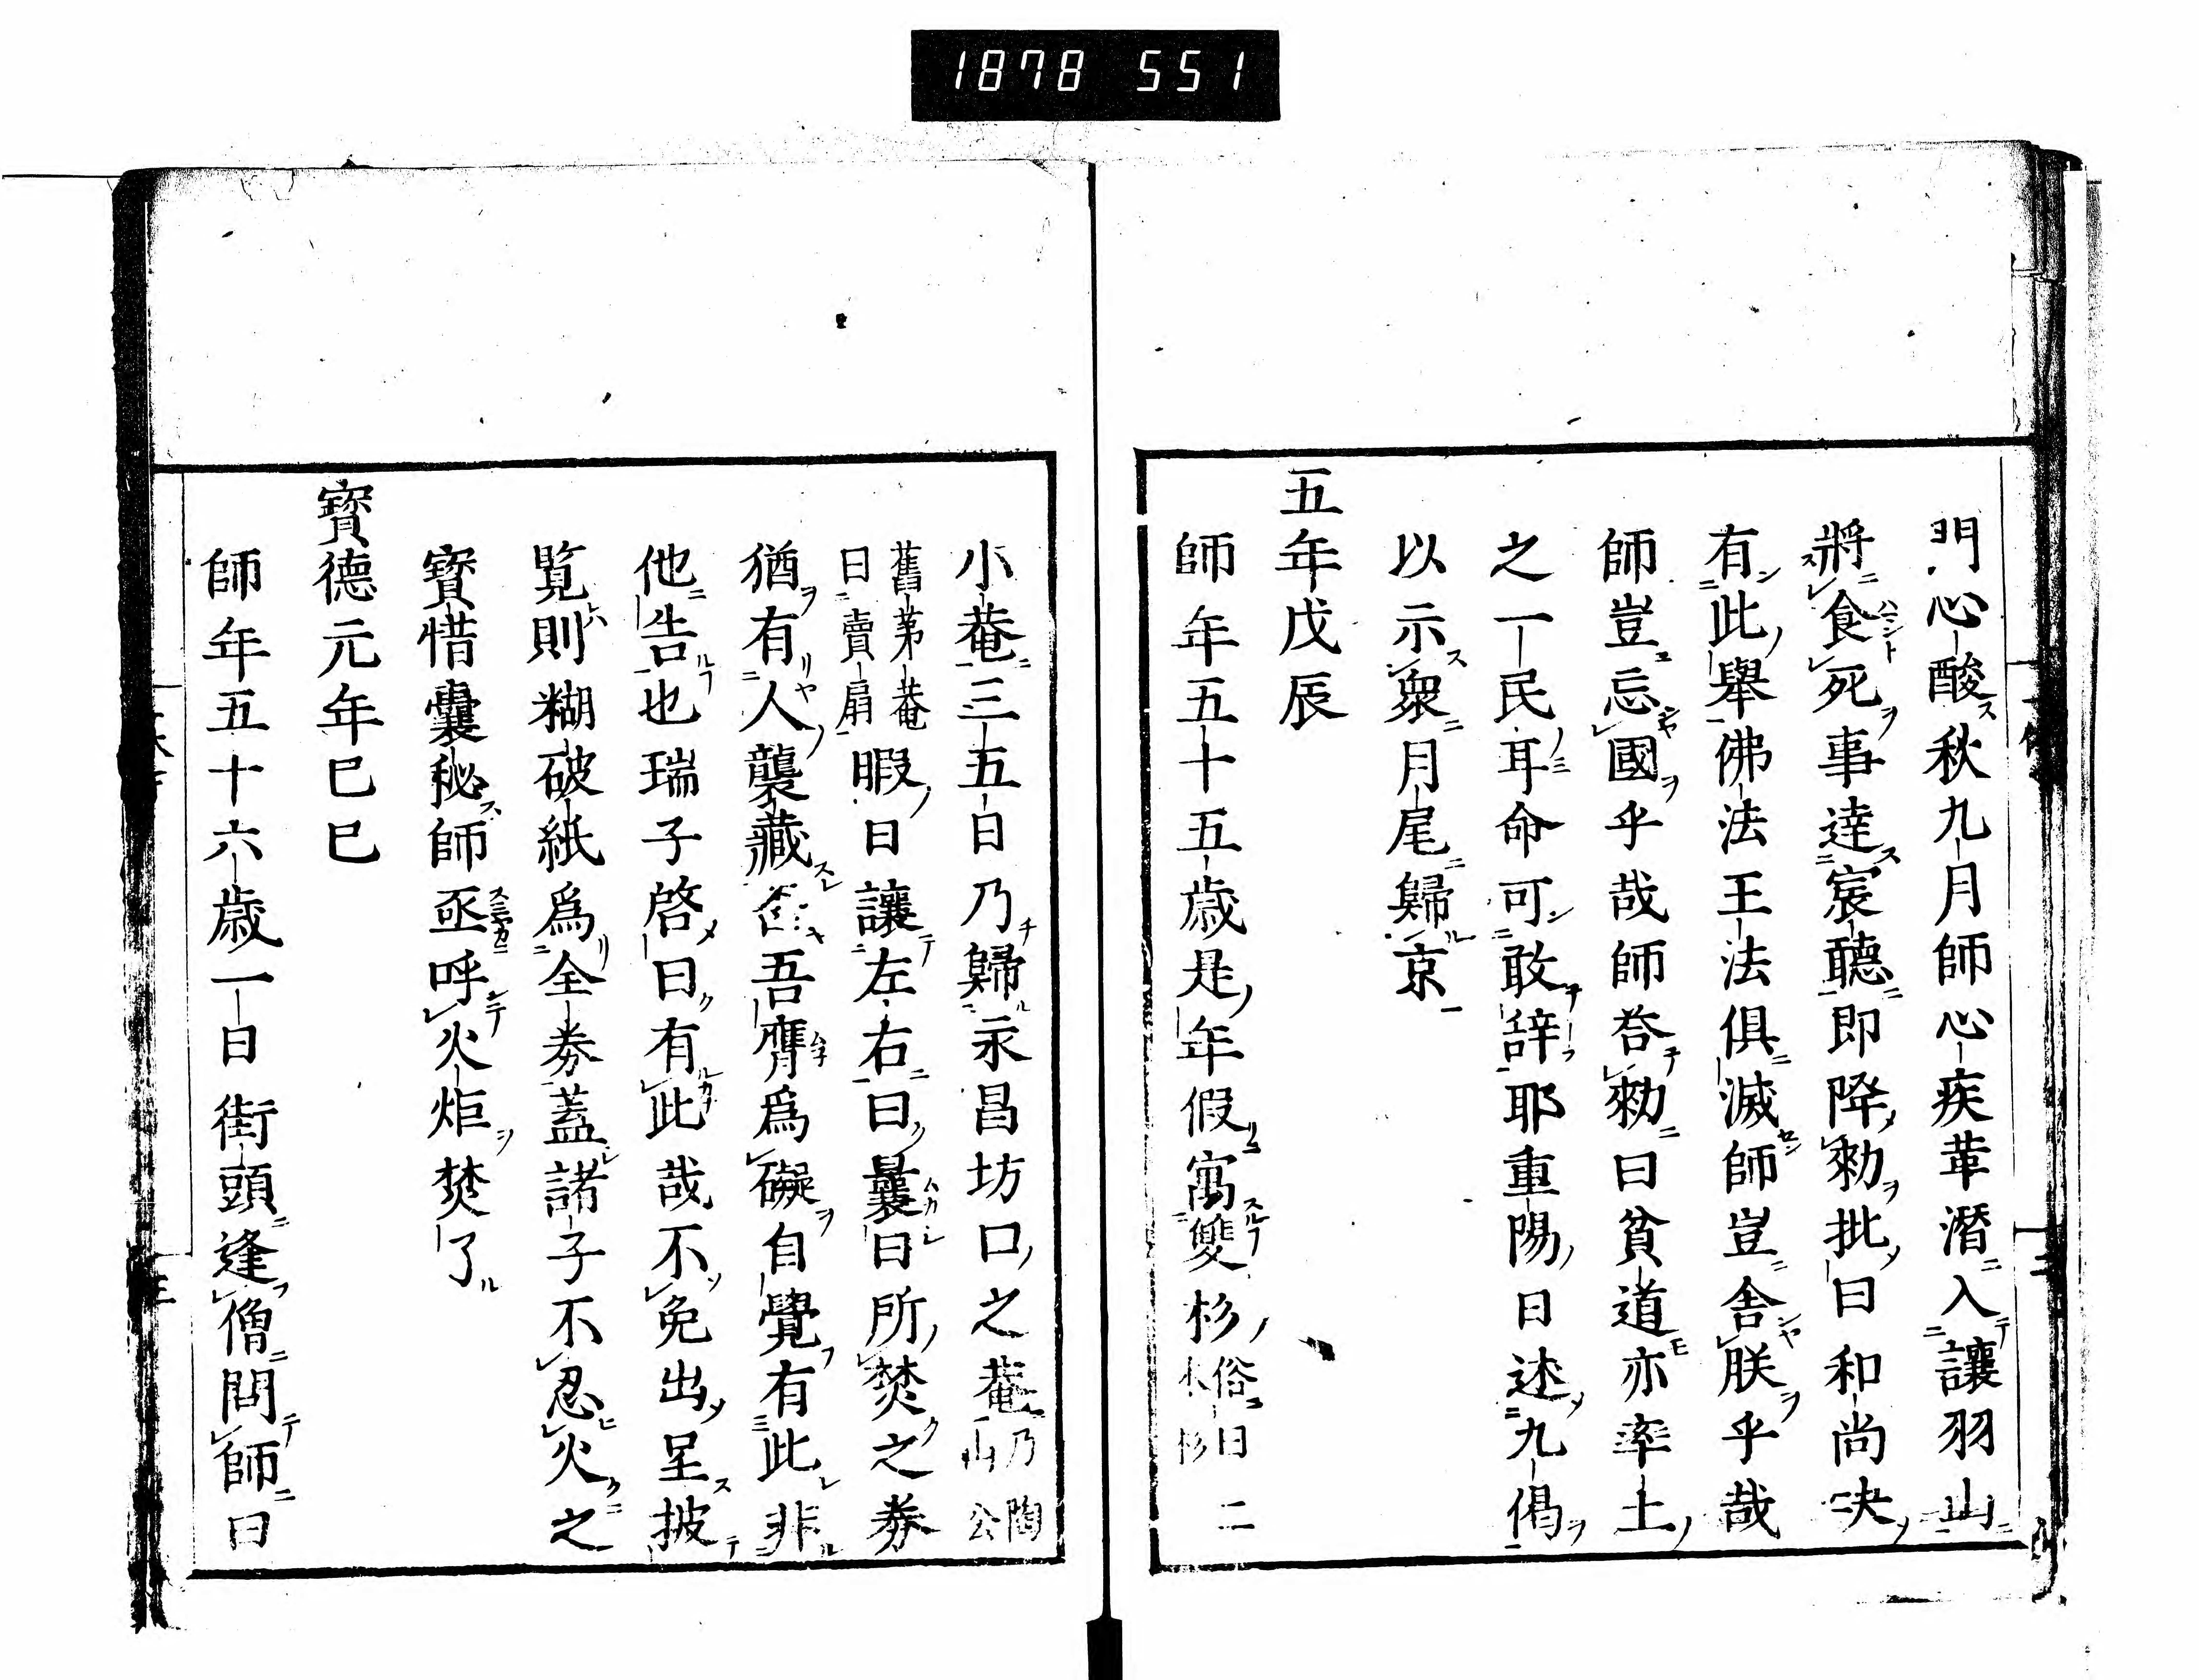 1878 551
門心酸秋九月師心疾革潛入讓羽山
將食死事達宸聽即降勑批曰和尚决
有此舉佛法王法俱滅師豈舍朕乎哉
師豈忘國乎哉師答勑曰貧道亦率土
之一民耳命可敢辞耶重陽日述九偈
以示衆月尾歸京
五年戊辰
師年五十五歳是年假寓雙杉俗曰二本杉
小菴三五日乃歸永昌坊口之菴乃陶山公
舊第菴曰賣扇暇日讓左右曰曩日所焚之劵
猶有人襲藏否吾膺爲礙自覺有此非
他告也瑞子啓曰有此哉不免出呈披
覧則糊破紙爲全劵蓋諸子不忍火之
寶惜囊秘師亟呼火炬焚了
寶德元年巳巳
師年五十六歳一日街頭逢僧問師曰